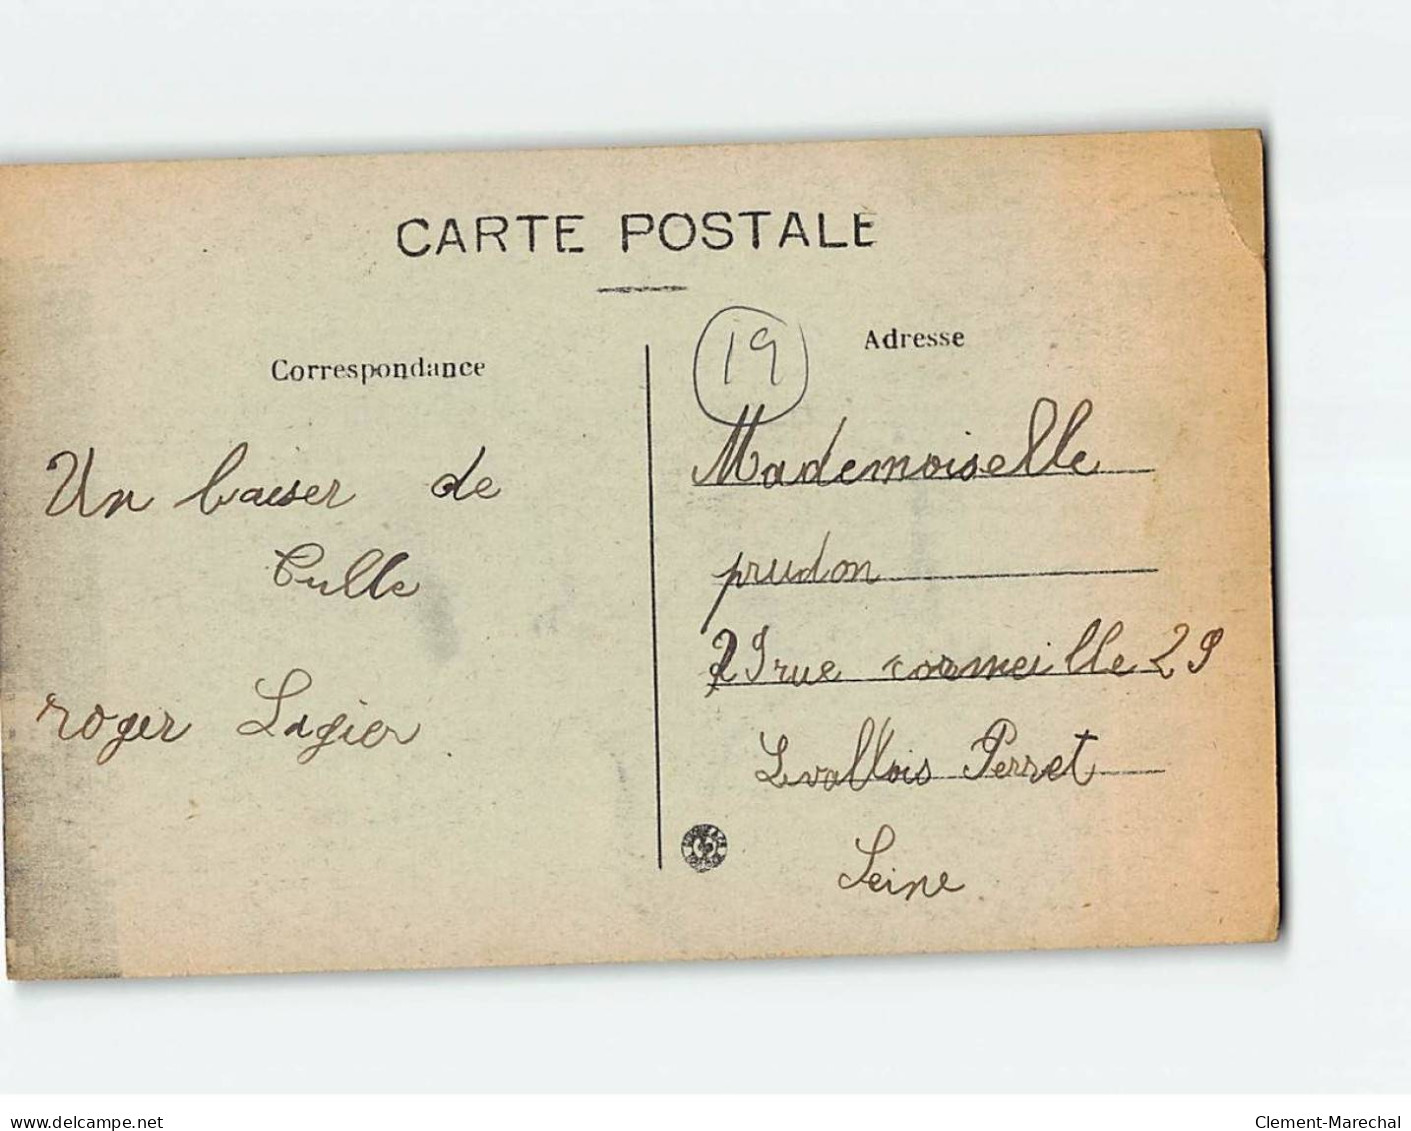 CARTE POSTALE
Correspondance
Un baiser de
Tulle
roger Lagier
19
Adresse
Mademoiselle
prudon
29 rue corneille 29
Levallois Perret
Seine
www.delcampe.net
Clement-Marechal